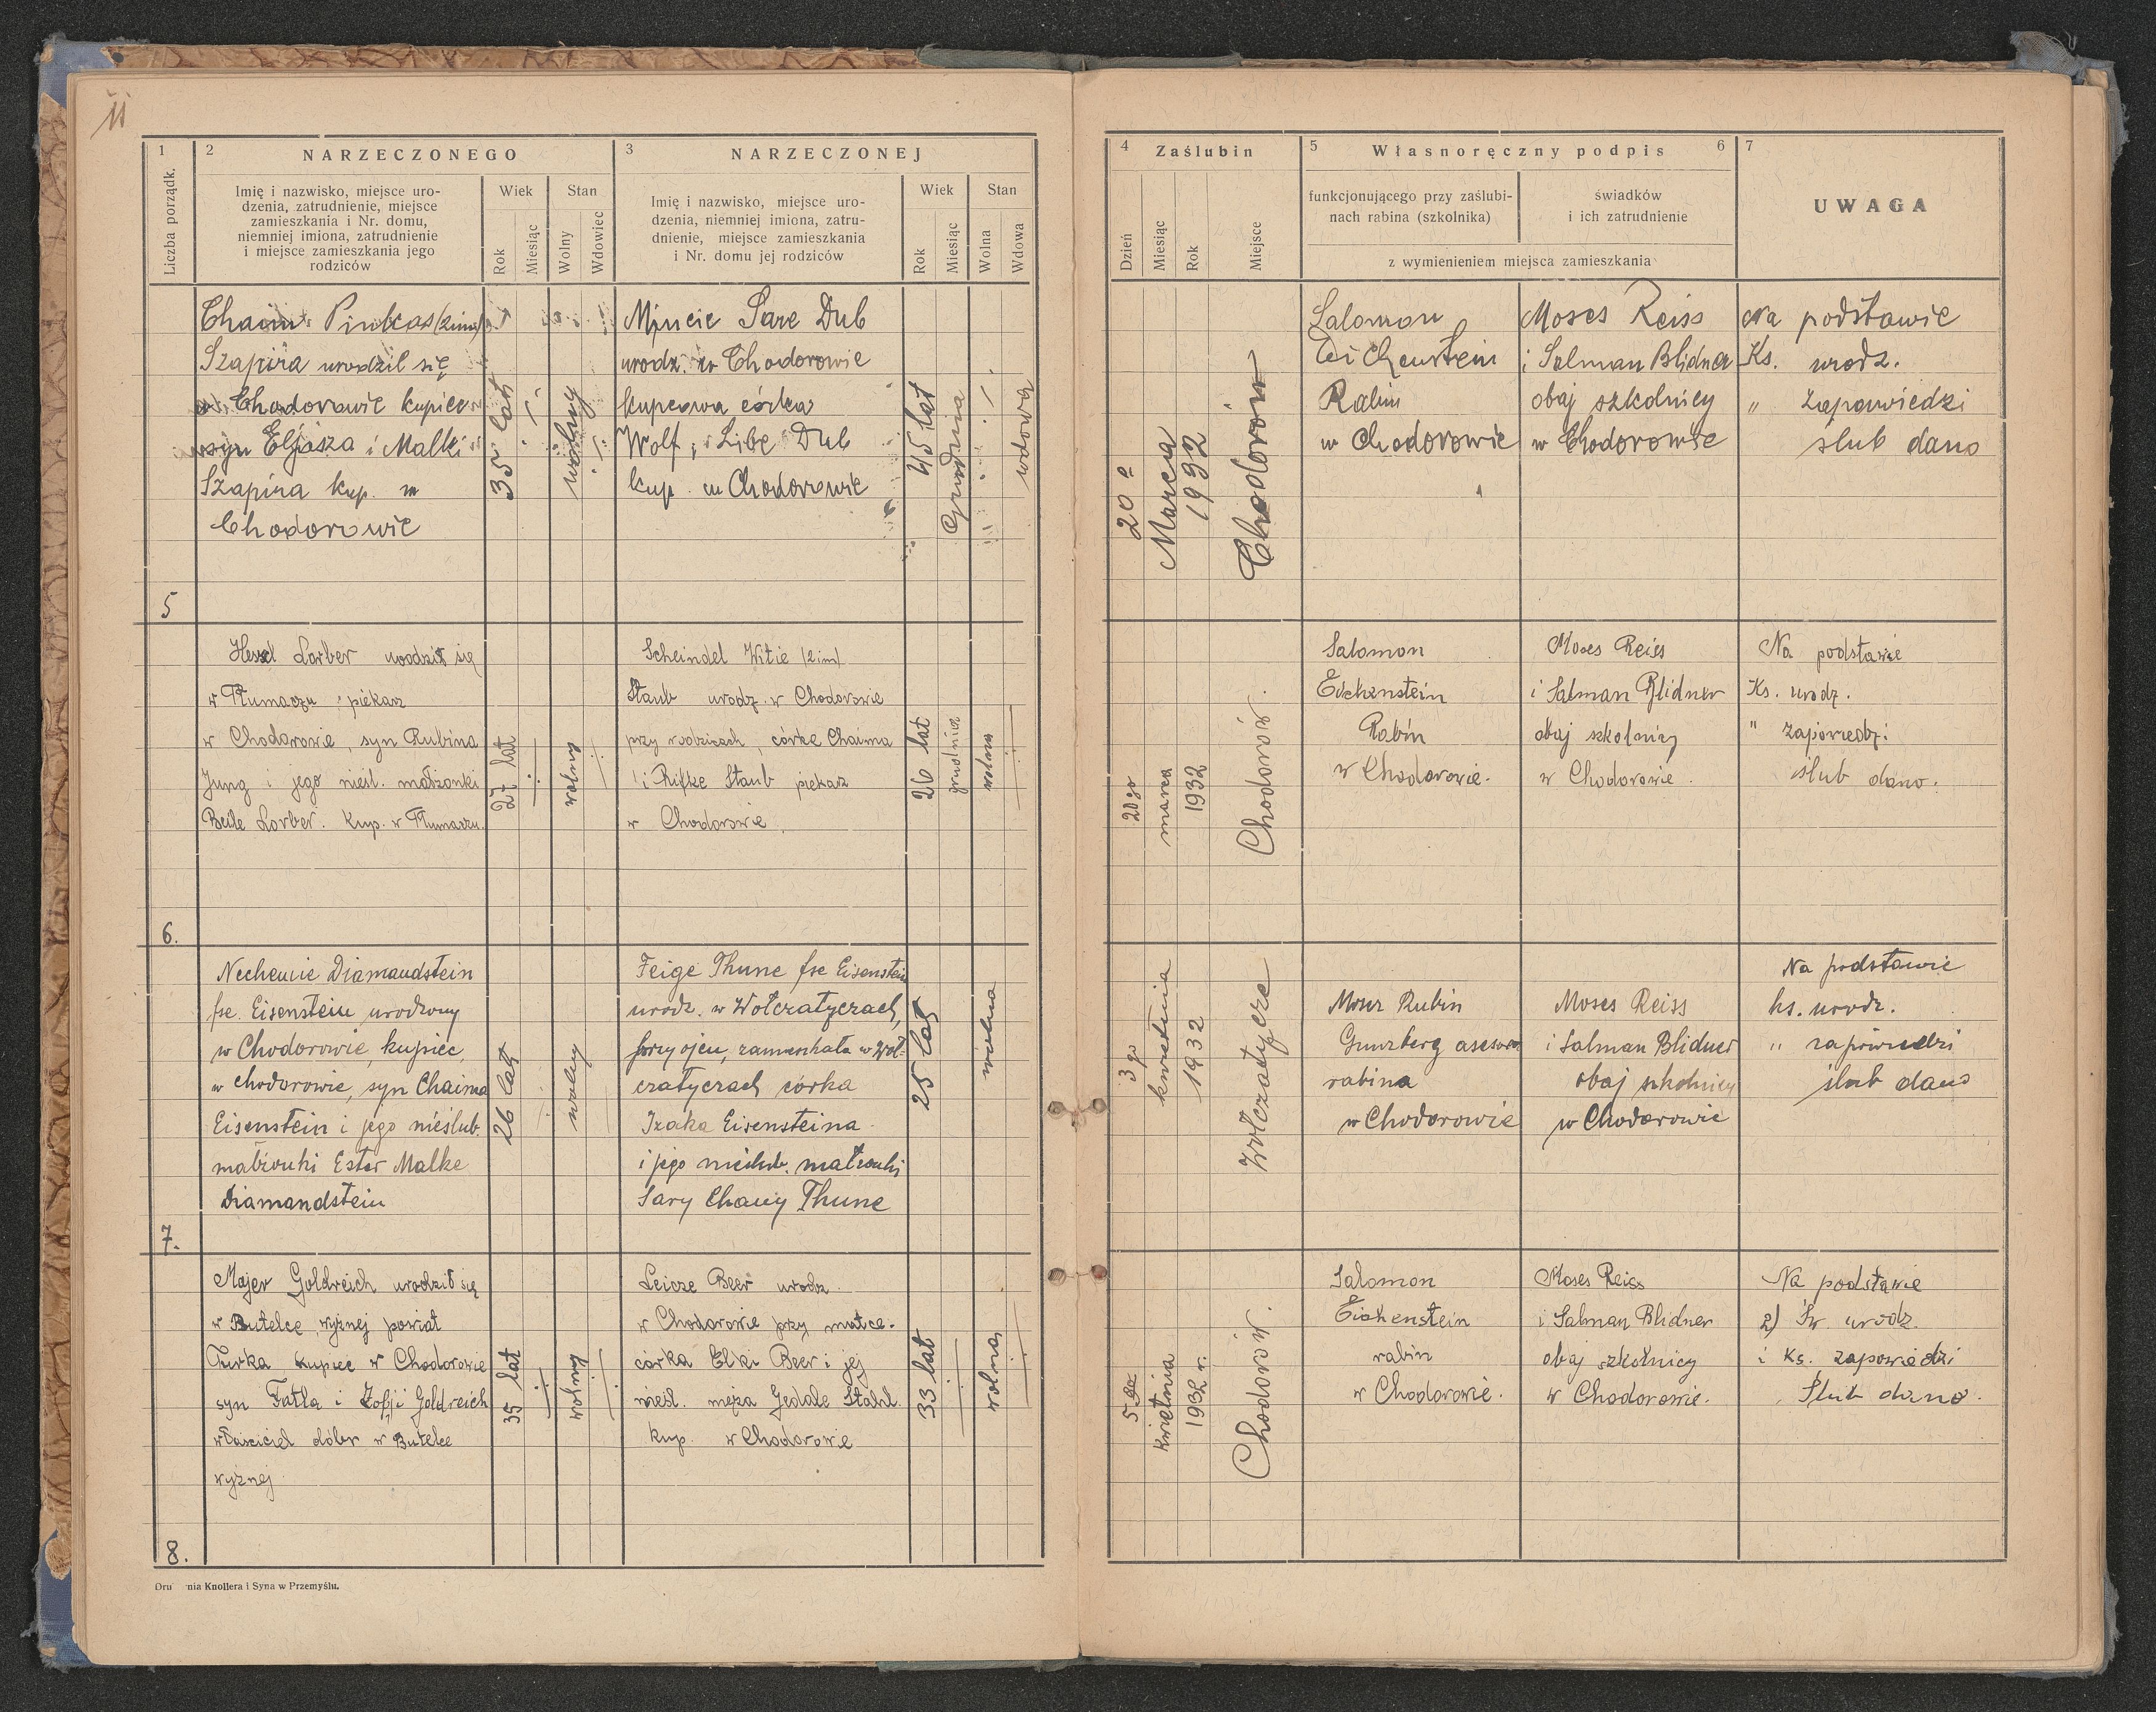 11
1
2
NARZECZONEGO
3
NARZECZONEJ
Liczba porządk.
Imię i nazwisko, miejsce uro-
dzenia, zatrudnienie, miejsce
zamieszkania i Nr. domu,
niemniej imiona, zatrudnienie
i miejsce zamieszkania jego
rodziców
Wiek
Stan
Rok
Miesiąc
Wolny
Wdowiec
Imię i nazwisko, miejsce uro-
dzenia, niemniej imiona, zatru-
dnienie, miejsce zamieszkania
i Nr. domu jej rodziców
Wiek
Stan
Rok
Miesiąc
Wolna
Wdowa
4
Zaślubin
5
Własnoręczny podpis
6
7
Dzień
Miesiąc
Rok
Miejsce
funkcjonującego przy zaślubi-
nach rabina (szkolnika)
świadków
i ich zatrudnienie
z wymienieniem miejsca zamieszkania
UWAGA
5
Chaim Pinkas (2 im)
Szapira urodzil się
w Chodorowie kupiec
syn Eljasza i Malki
Szapira kup. w
Chodorowie
35 lat
wolny
Mincie Sare Dub
urodz. w Chodorowie
kupcowa córka
Wolf i Libe Dub
kup. w Chodorowie
45 lat
Grudnia
wdowa
20 o
Marca
1932
Chodorów
Salomon
Eichenstein
Rabin
w Chodorowie
Moses Reiss
i Salman Blidner
obaj szkolnicy
w Chodorowie
Na podstawie
Ks. urodz.
" Zapowiedzi
slub dano
6.
Hersel Lorber urodził się
w Tłumaczu piekarz
w Chodorowie, syn Rubina
Jung i jego nieśl. małżonki
Beile Lorber. Kup. w Tłumaczu.
27 lat
wolny
Scheindel Witie (2 im)
Staub urodz. w Chodorowie
przy rodzicach, córka Chaima
i Rifke Staub piekarz
w Chodorowie.
26 lat
grudnia
wolna
20 go
marca
1932
Chodorów.
Salomon
Eichenstein
Rabin
w Chodorowie.
Moses Reiss
i Salman Blidner
obaj szkolnicy
w Chodorowie
Na podstawie
Ks. urodz.
" zapowiedzi
ślub dano.
7.
Nechemie Diamandstein
fse. Eisenstein urodzony
w Chodorowie, kupiec,
w Chodorowie, syn Chaima
Eisenstein i jego nieślub.
małżonki Ester Malke
Diamandstein
26 lat
wolny
Feige Thune fse Eisenstein
urodz. w Wołczatyczach,
przy ojcu, zamieszkała w Woł-
czatyczach córka
Izaka Eisensteina
i jego nieślub. małżonki
Sary Chany Thune
25 lat
wolna
3 go
kwietnia
1932
Wołczatycze
Moser Rubin
Gunzberg asesor
rabina
w Chodorowie
Moses Reiss
i Salman Blidner
obaj szkolnicy
w Chodorowie
Na podstawie
ks. urodz.
" zapowiedzi
ślub dano
8.
Majer Goldreich urodził się
w Butelce wyżnej powiat
Turka kupiec w Chodorowie
syn Fatla i Zofji Goldreich
właściciel dóbr w Butelce
wyżnej
35 lat
wolny
Leicze Beer urodz.
w Chodorowie przy matce.
córka Elki Beer i jej
nieśl. męża Gedale Stahl.
kup. w Chodorowie
33 lat
wolna
5 go
kwietnia
1932 r.
Chodorów.
Salomon
Eichenstein
rabin
w Chodorowie.
Moses Reiss
i Salman Blidner
obaj szkolnicy
w Chodorowie.
Na podstawie
2) Św. urodz.
i Ks. zapowiedzi
Ślub dano.
nia Knollera i Syna w Przemyślu.